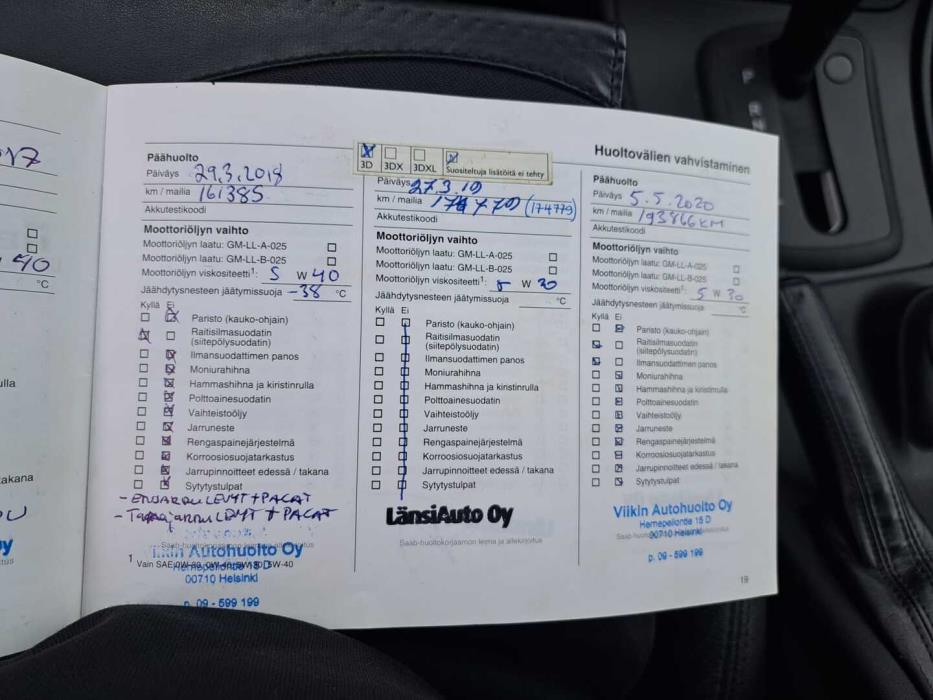 Huoltovälien vahvistaminen
Päähuolto
Päiväys 29.3.2018
km / mailia 161385
Akkutestikoodi
Moottoriöljyn vaihto
Moottoriöljyn laatu: GM-LL-A-025
Moottoriöljyn laatu: GM-LL-B-025
Moottoriöljyn viskositeetti¹: 5 W 40
Jäähdytysnesteen jäätymissuoja -38 °C
Kyllä Ei
Paristo (kauko-ohjain)
Raitisilmasuodatin
(siitepölysuodatin)
Ilmansuodattimen panos
Moniurahihna
Hammashihna ja kiristinrulla
Polttoainesuodatin
Vaihteistoöljy
Jarruneste
Rengaspainejärjestelmä
Korroosiosuojatarkastus
Jarrupinnoitteet edessä / takana
Sytytystulpat
- ETUJARRU LEVYT + PALAT
- TAKAJARRU LEVYT + PALAT
Viikin Autohuolto Oy
Hernepellontie 15 D
00710 Helsinki
p. 09 - 599 199
3D 3DX 3DXL Suositeltuja lisätöitä ei tehty
Päiväys 27.3.19
km / mailia (174779)
Akkutestikoodi
Moottoriöljyn vaihto
Moottoriöljyn laatu: GM-LL-A-025
Moottoriöljyn laatu: GM-LL-B-025
Moottoriöljyn viskositeetti¹: 5 W 30
Jäähdytysnesteen jäätymissuoja °C
Kyllä Ei
Paristo (kauko-ohjain)
Raitisilmasuodatin
(siitepölysuodatin)
Ilmansuodattimen panos
Moniurahihna
Hammashihna ja kiristinrulla
Polttoainesuodatin
Vaihteistoöljy
Jarruneste
Rengaspainejärjestelmä
Korroosiosuojatarkastus
Jarrupinnoitteet edessä / takana
Sytytystulpat
LänsiAuto Oy
Saab-huoltokorjaamon leima ja allekirjoitus
Päähuolto
Päiväys 5.5.2020
km / mailia 193866 KM
Akkutestikoodi
Moottoriöljyn vaihto
Moottoriöljyn laatu: GM-LL-A-025
Moottoriöljyn laatu: GM-LL-B-025
Moottoriöljyn viskositeetti¹: 5 W 30
Jäähdytysnesteen jäätymissuoja °C
Kyllä Ei
Paristo (kauko-ohjain)
Raitisilmasuodatin
(siitepölysuodatin)
Ilmansuodattimen panos
Moniurahihna
Hammashihna ja kiristinrulla
Polttoainesuodatin
Vaihteistoöljy
Jarruneste
Rengaspainejärjestelmä
Korroosiosuojatarkastus
Jarrupinnoitteet edessä / takana
Sytytystulpat
Viikin Autohuolto Oy
Hernepellontie 15 D
00710 Helsinki
p. 09 - 599 199
19
40
°C
takana
P